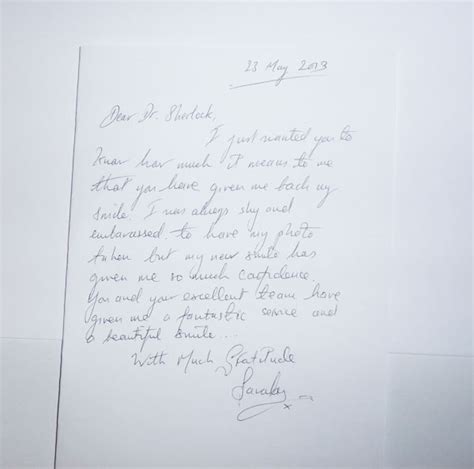 23 May 2013
Dear Dr. Sherlock,
I just wanted you to
know how much it means to me
that you have given me back my
smile. I was always shy and
embarassed to have my photo
taken but my new smile has
given me so much confidence.
You and your excellent team have
given me a fantastic service and
a beautiful smile...
With Much Gratitude
x